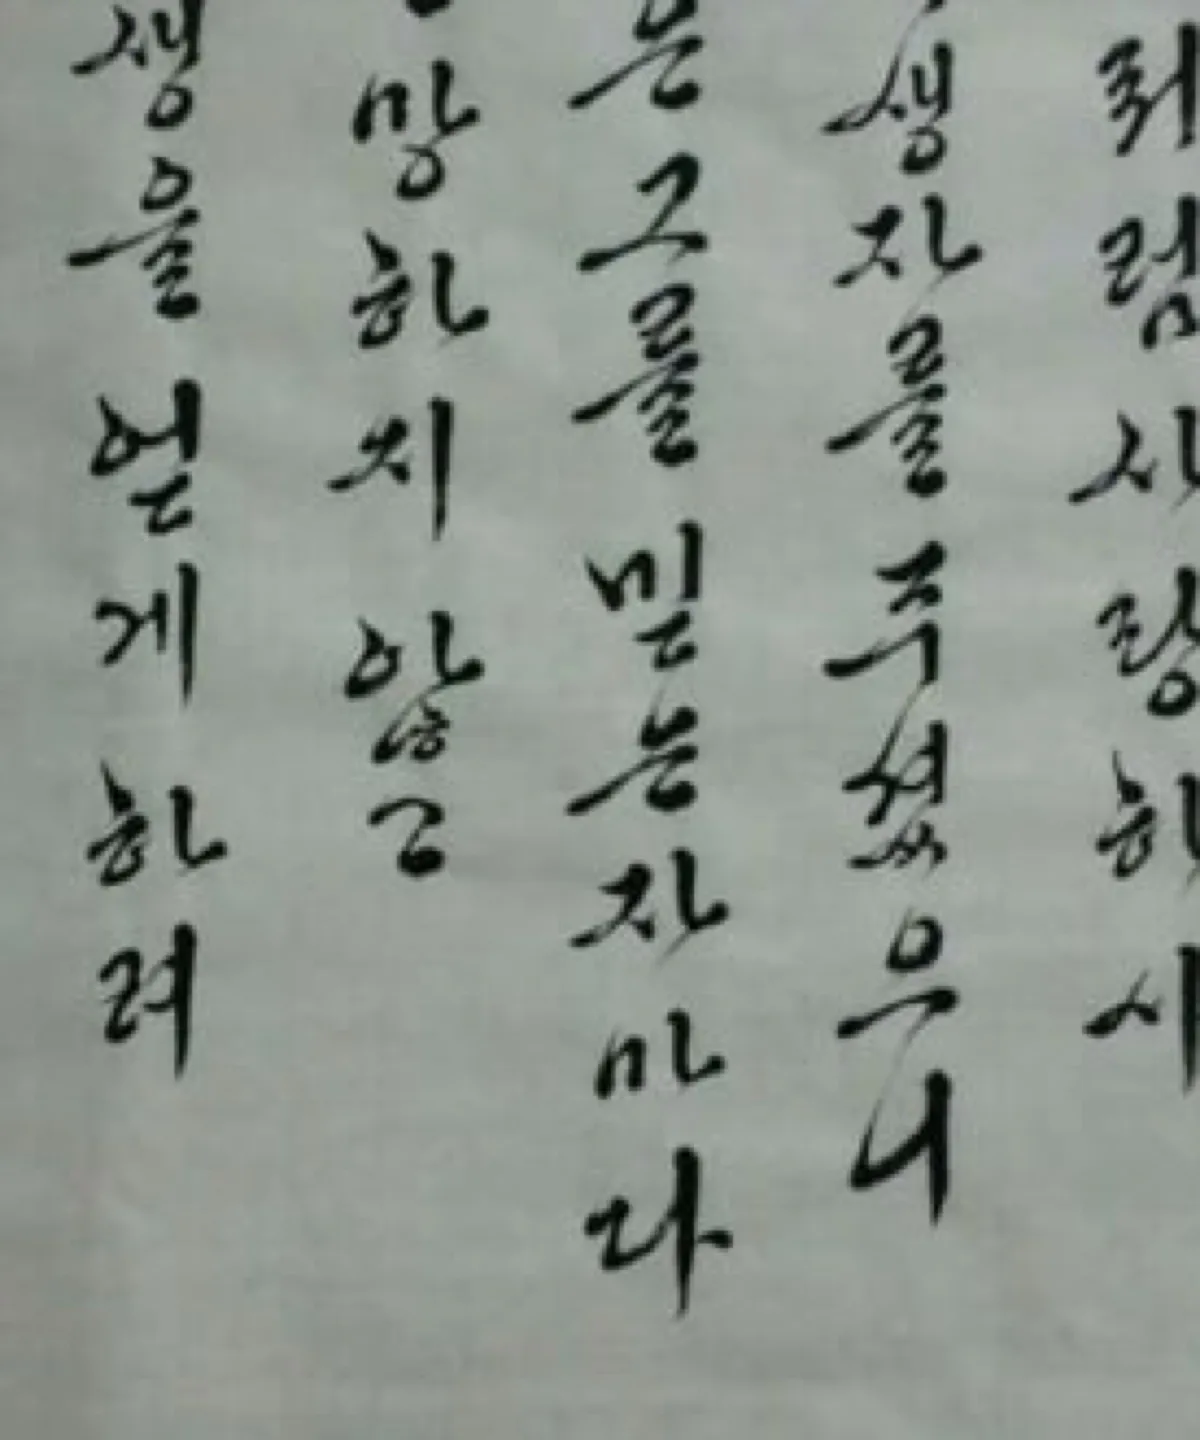 처럼 사랑하시
생자를 주셨으니
는 그를 믿는 자마다
망하지 않고
생을 얻게 하려